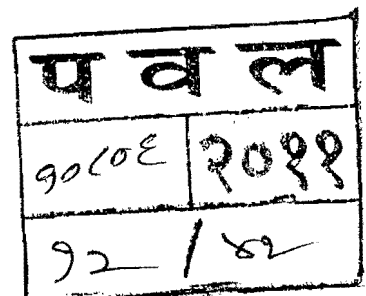 प व ल
१०८०६ २०११
१२ / ४२